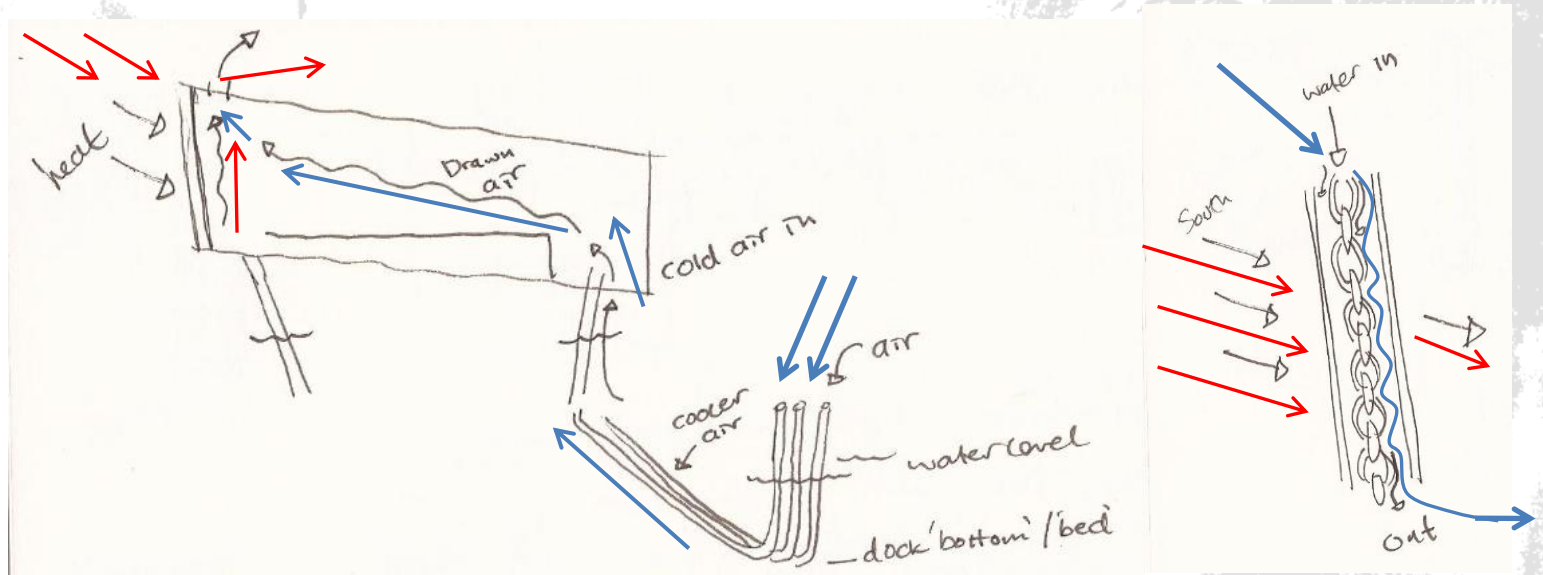 heat
Drawn
air
cold air in
cooler
air
air
water level
dock 'bottom' / 'bed'
water in
South
out